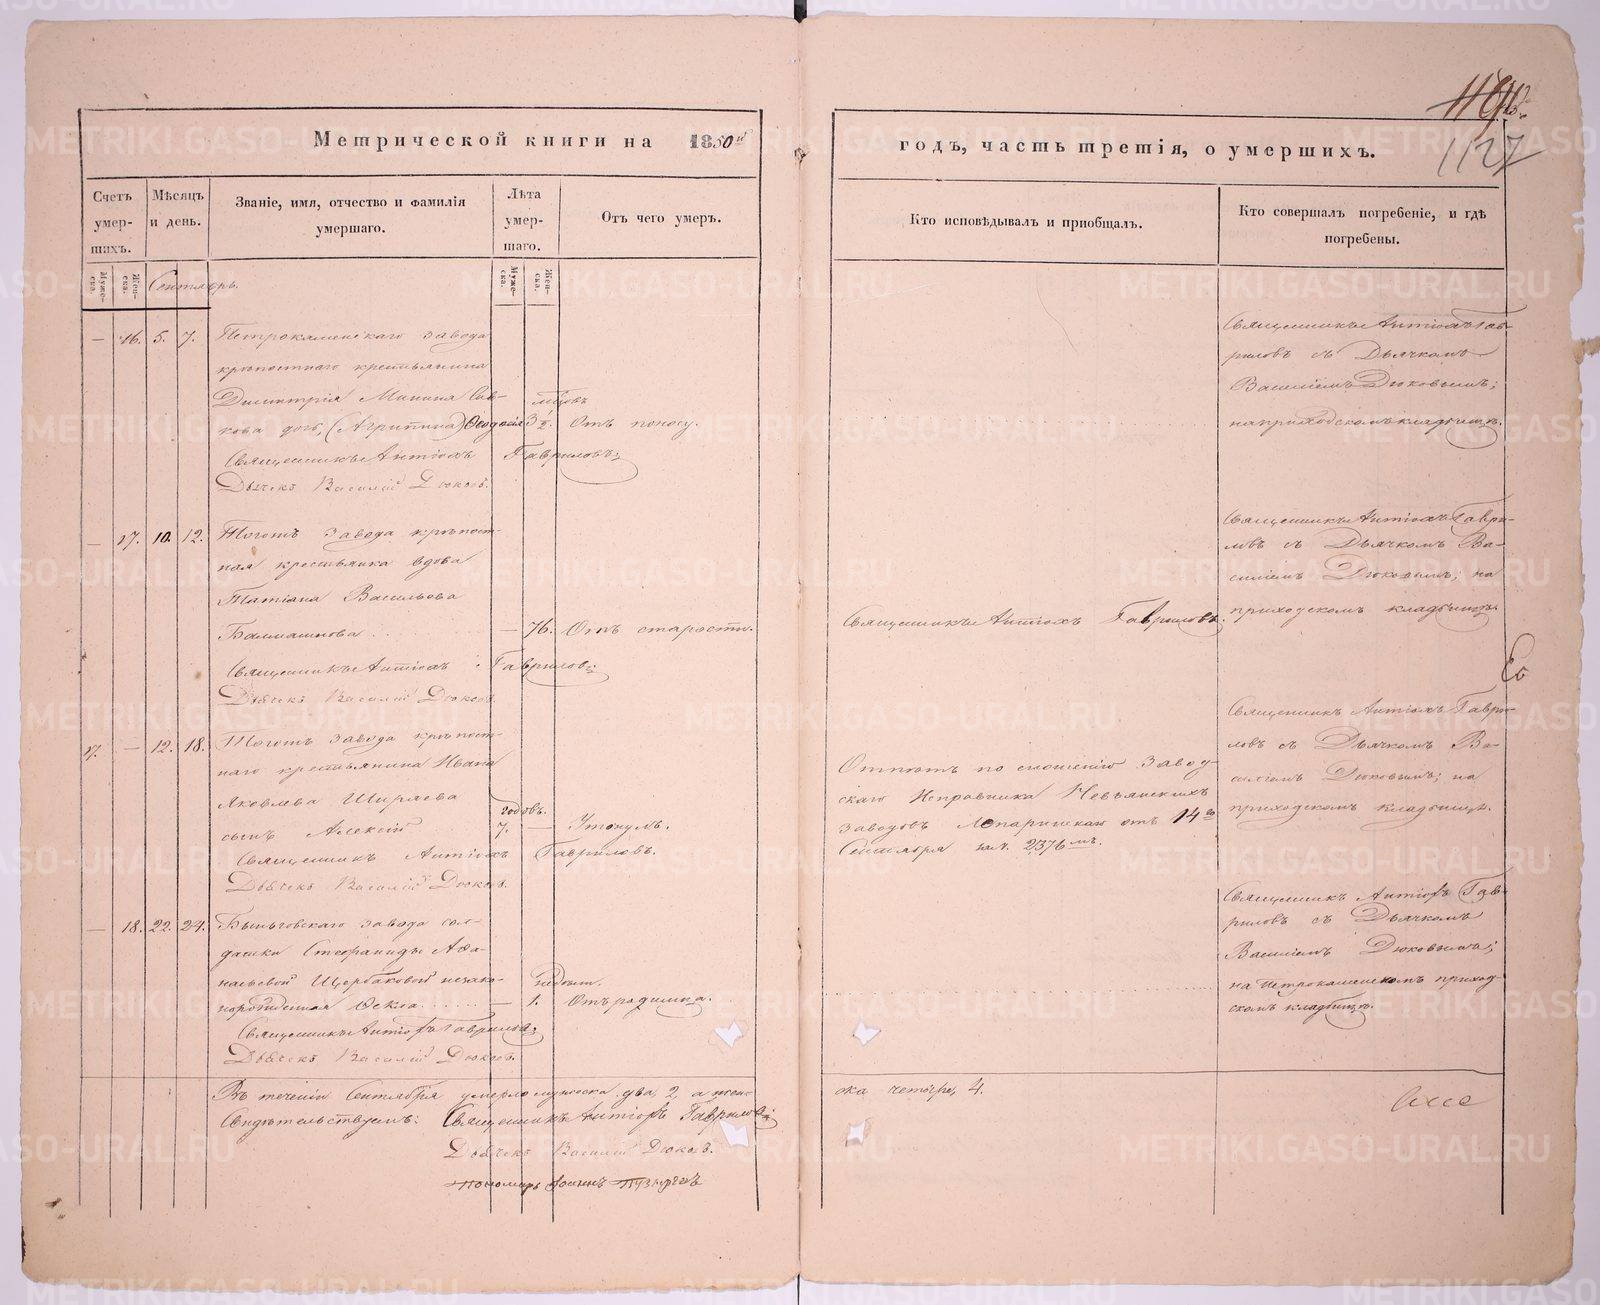 Метрической книги на 1850й
годъ, часть третія, о умершихъ.
1127
Счетъ умер-шихъ.
Мѣсяцъ и день.
Званіе, имя, отчество и фамилія умершаго.
Лѣта умер-шаго.
Отъ чего умеръ.
Кто исповѣдывалъ и пріобщалъ.
Кто совершалъ погребеніе, и гдѣ погребены.
Муже-ска.
Жен-ска.
Сентябрь.
Муже-ска.
Жен-ска.
— 16. 5. 7. Петрокаменскаго завода
крѣпостнаго крестьянина
Димитрія Минина Сав-
мѣсцовъ
кова дочь, (Агрипина) Ѳеодосія 3 ½. Отъ поносу.
Священникъ Антіохъ Гавриловъ;
Дьячекъ Василій Дюковъ.
Священникъ Антіохъ Гав-
риловъ съ Дьячкомъ
Василіемъ Дюковымъ;
на приходскомъ кладбищѣ.
— 17. 10. 12. Тогожъ завода крѣпост-
ная крестьянка вдова
Татіана Васильева
Балашкова — 76. Отъ старости.
Священникъ Антіохъ Гавриловъ;
Дьячекъ Василій Дюковъ.
Священникъ Антіохъ Гавриловъ.
Священникъ Антіохъ Гаври-
ловъ съ Дьячкомъ Ва-
силіемъ Дюковымъ; на
приходскомъ кладбищѣ.
17. — 12. 18. Тогожъ завода крѣпост-
наго крестьянина Ивана
Яковлева Ширяева
годовъ.
сынъ Алексій 7. — Утонулъ.
Священникъ Антіохъ Гавриловъ.
Дьячекъ Василій Дюковъ.
Отпѣтъ по сношенію Завод-
скаго Исправника Невьянскихъ
заводовъ от 14го
Сентября за № 2376мъ.
Священникъ Антіохъ Гаври-
ловъ съ Дьячкомъ Ва-
силіемъ Дюковымъ; на
приходскомъ кладбищѣ.
— 18. 22. 24. Быньговскаго завода сол-
датки Стефаниды Аѳа-
насьевой Щербаковой незако-
недѣль.
норожденная Ѳекла — 1. Отъ родимца.
Священникъ Антіохъ Гавриловъ;
Дьячекъ Василій Дюковъ.
Священникъ Антіохъ Гав-
риловъ съ Дьячкомъ
Василіемъ Дюковымъ;
на Петрокаменскомъ приход-
скомъ кладбищѣ.
Въ теченіи Сентября умерло мужеска два, 2, а жен-
ска четыре, 4.
Свидѣтельствуемъ: Священникъ Антіохъ Гавриловъ
Дьячекъ Василій Дюковъ.
Пономарь Іоаннъ Пузыревъ
METRIKI.GASO-URAL.RU